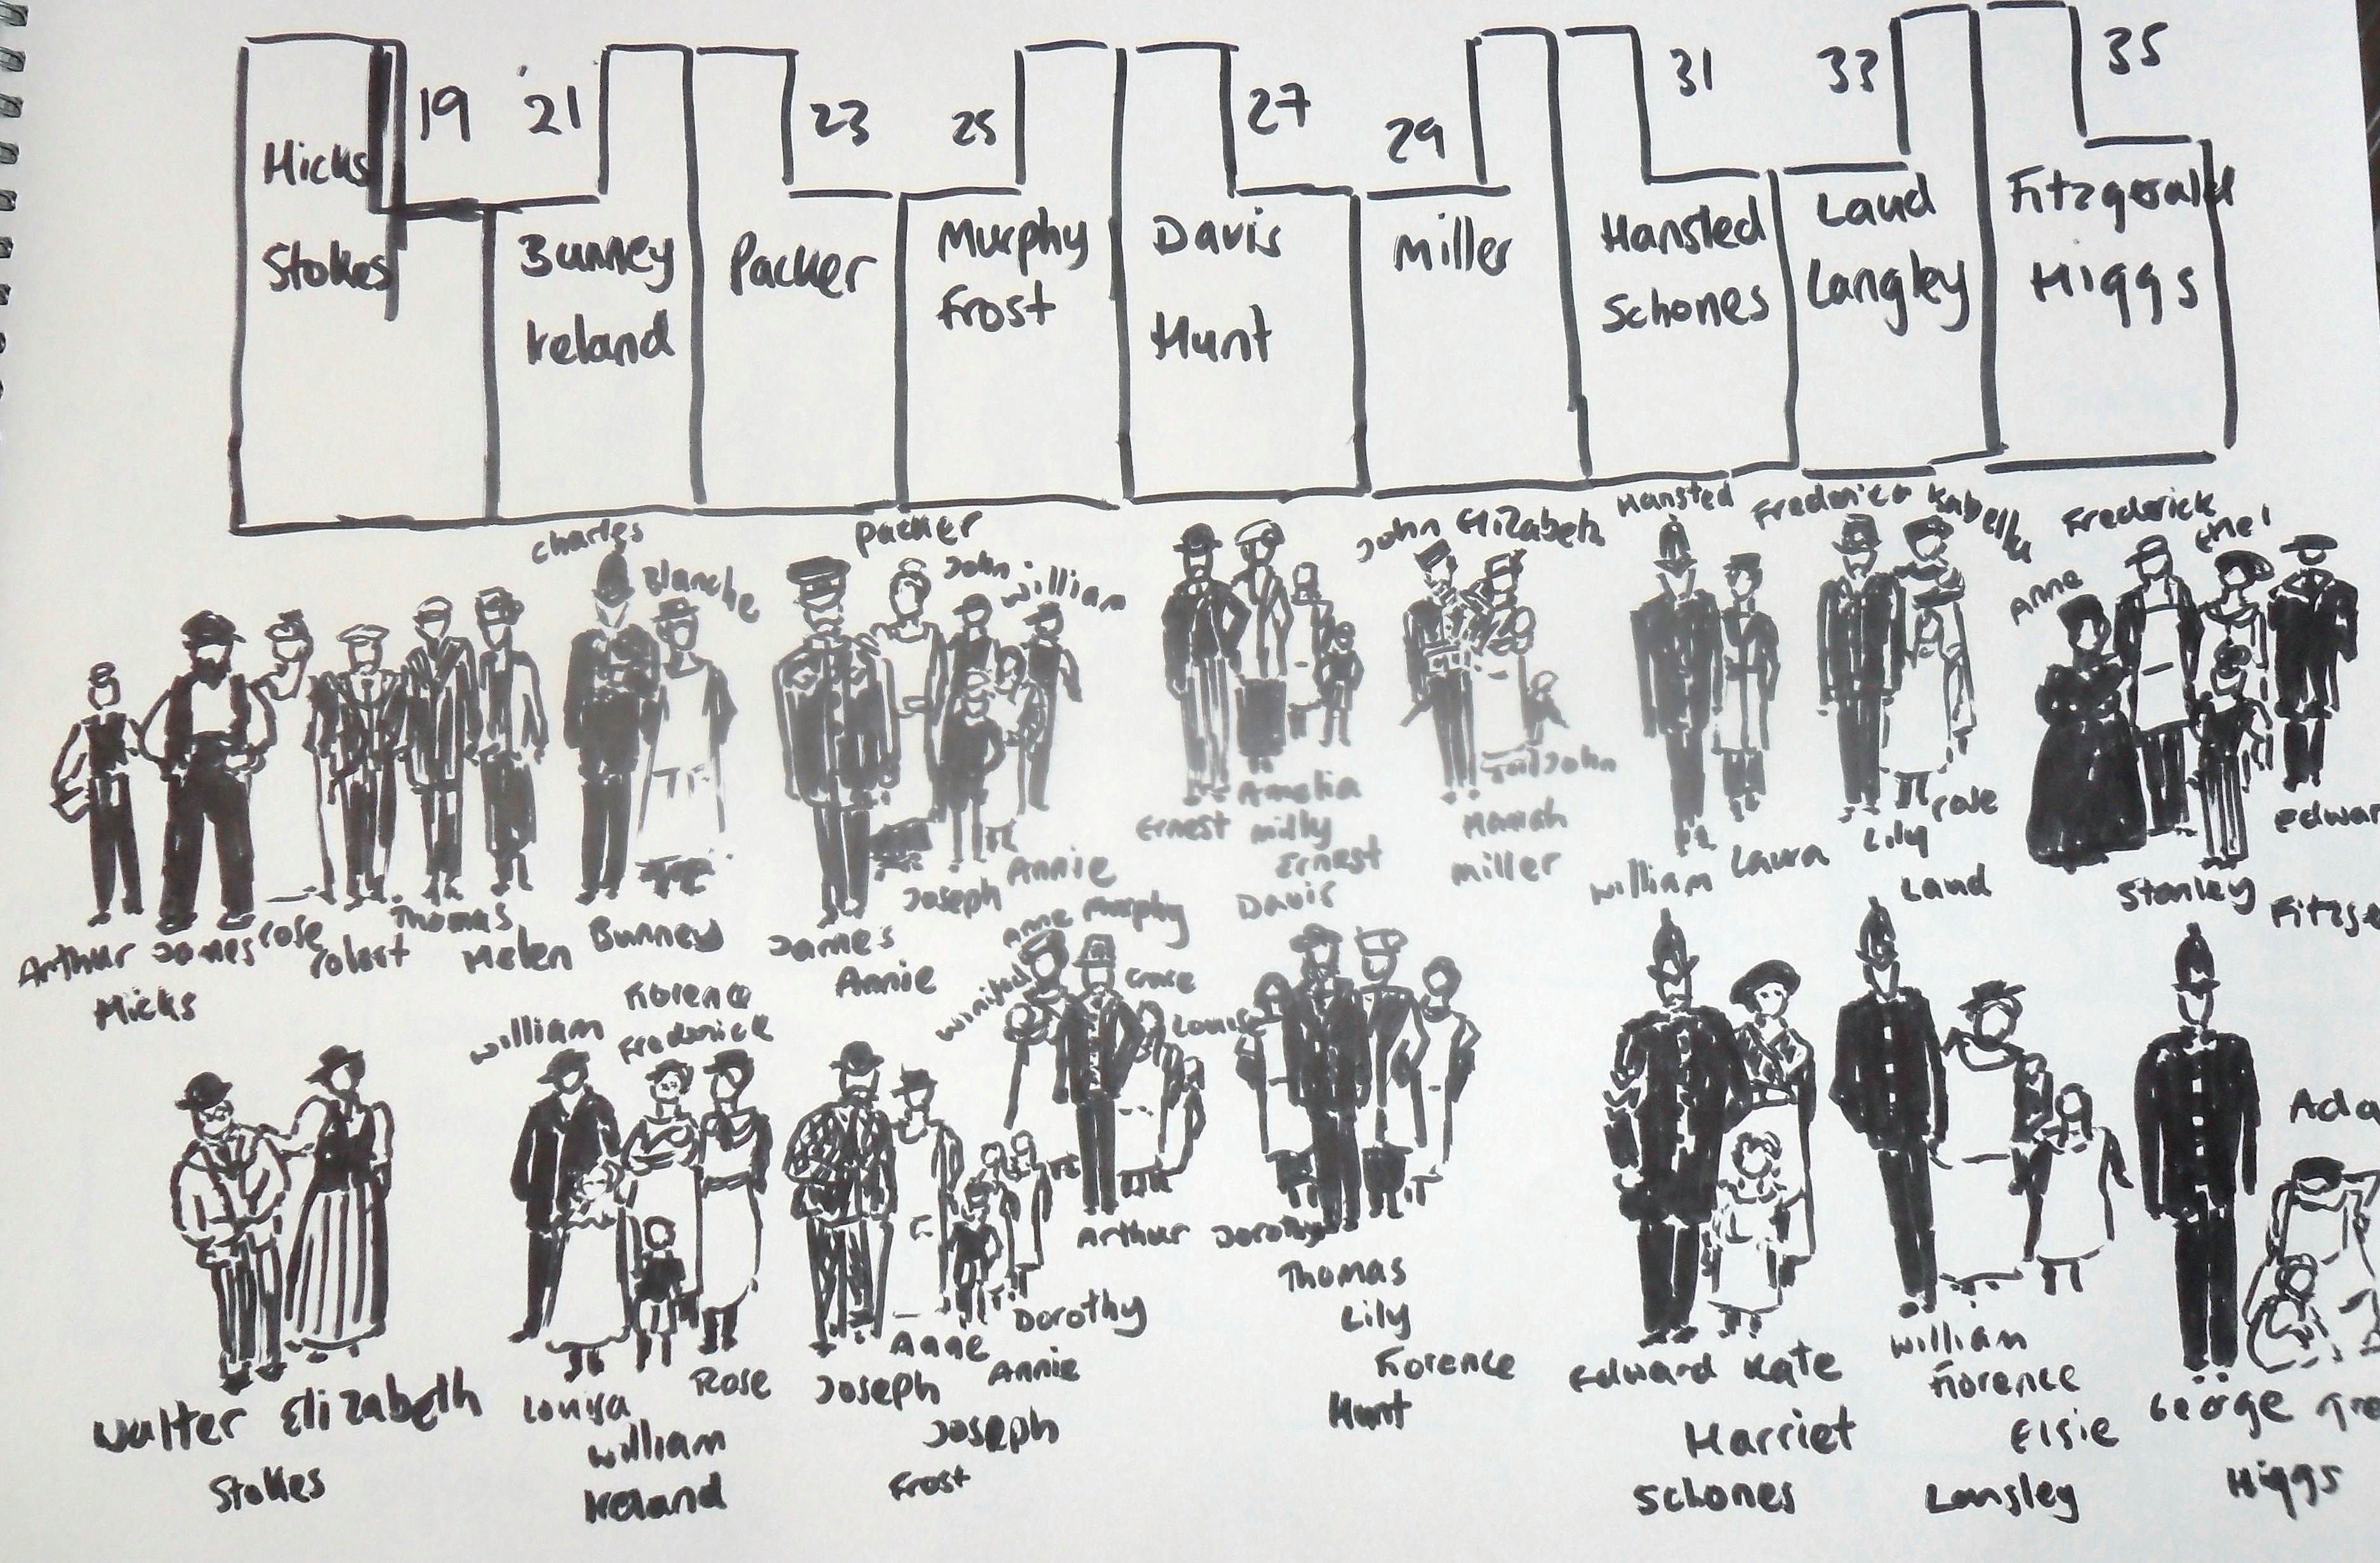 19 21 23 25 27 29 31 33 35
Hicks
Stokes
Bunney
Ireland
Packer
Murphy
Frost
Davis
Hunt
Miller
Hansted
Schones
Laud
Langley
Fitzgerald
Higgs
Arthur James rose robert Thomas Helen
Hicks
Charles
Blanche
Bunney
Packer
John William
James
Annie
Joseph Annie
Ernest Amelia
milly
Ernest
Davis
John Elizabeth
John
Hanah
Miller
Hansted
William Laura
Frederick
Lily rose
Laud
Anne Frederick Ethel
Stanley
Walter Elizabeth
Stokes
William Florence
Frederick
Louisa Rose
William
Ireland
Joseph Anne Dorothy
Annie
Joseph
Frost
Anne Murphy
Winifred
Arthur
Louisa
Dorothy
Thomas
Lily
Florence
Hunt
Edward Kate
Harriet
Schones
William
Florence
Elsie
Langley
Ada
George
Higgs